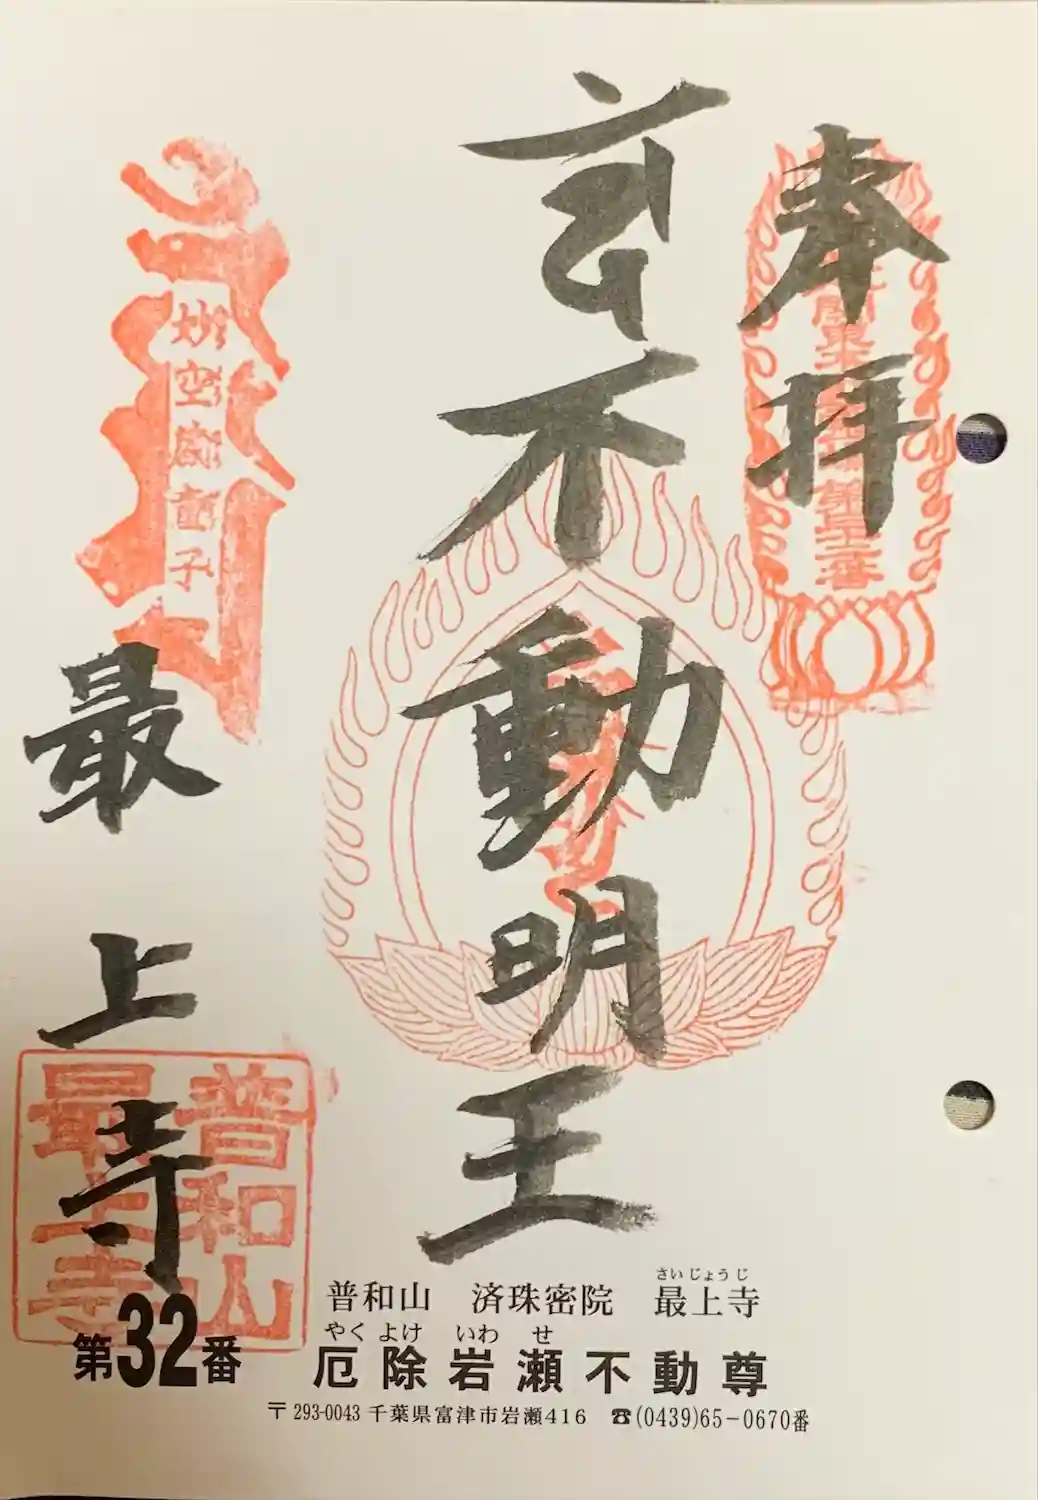 奉拝
不動明王
最上寺
妙空蔵童子
普和山
最上寺
第32番
普和山 済珠密院 最上寺
さいじょうじ
やくよけ いわせ
厄除岩瀬不動尊
〒293-0043 千葉県富津市岩瀬416 ☎(0439)65-0670番